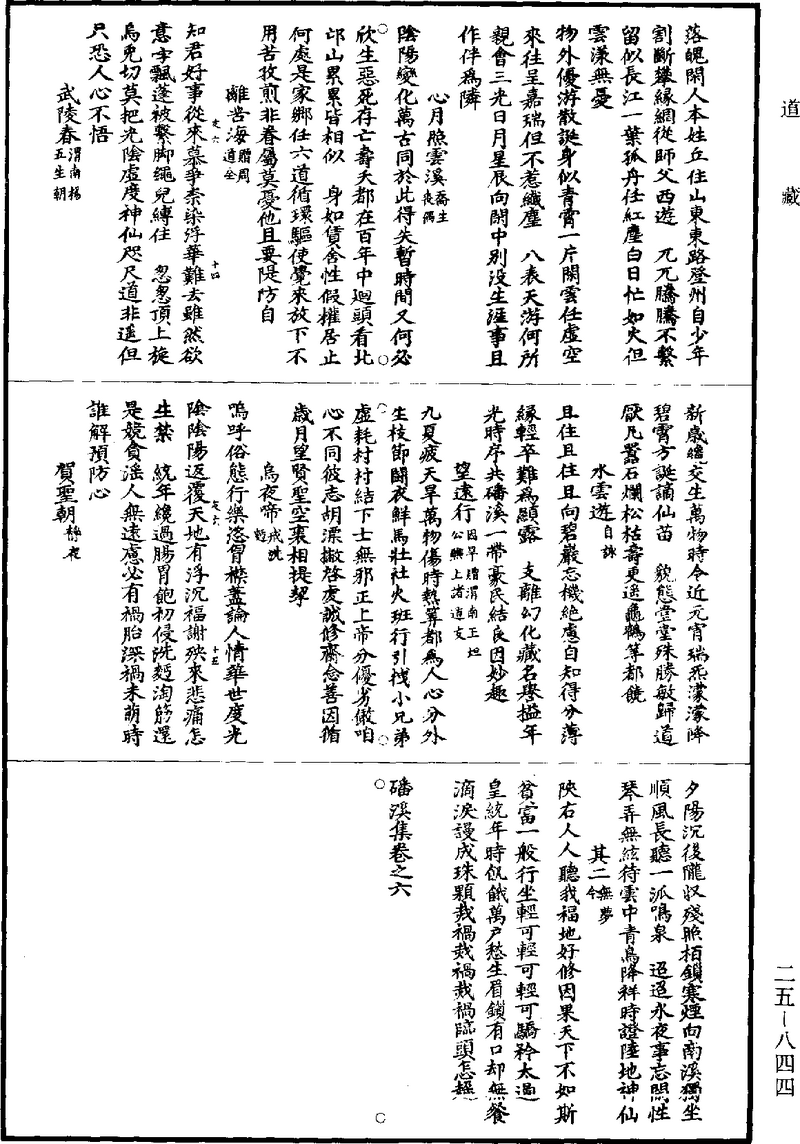 道藏
落魄閑人本姓丘住山東東路登州自少年
割斷攀緣網從師父西遊　兀兀騰騰不繫
留似長江一葉孤舟任紅塵白日忙如火但
雲漾無憂
物外優游散誕身似青霄一片閑雲任虛空
來往呈嘉瑞但不惹纖塵　八表天游何所
親會三光日月星辰向閑中別沒生涯事且
作伴為隣
心月照雲溪 喬生喪偶
陰陽變化萬古同於此得失暫時間又何必
欣生惡死存亡壽夭都在百年中迴頭看北
邙山累累皆相似　身如賃舍性假權居止
何處是家鄉任六道循環驅使覺來放下不
用苦牧煎非眷屬莫憂他且要隄防自
離苦海 贈周道全
知君好事從來慕爭柰染浮華難去雖然欲
意字飄蓬被繫脚繩兒縛住　怱怱頂上旋
烏兎切莫把光陰虛度神仙咫尺道非遥但
只恐人心不悟
武陵春 渭南楊五生朝
新歲纔交生萬物時令近元宵瑞炁濛濛降
碧霄方誕謫仙苗　貌態堂堂殊勝敏歸道
厭凡囂石爛松枯壽更遥龜鶴等都饒
水雲遊 自詠
且住且住且向碧巖忘機絕慮自知得分薄
緣輕卒難為顯露　支離幻化藏名譽搤年
光時序共磻溪一帶豪民結良因妙趣
望遠行 因旱贈渭南王坦公糾上諸道友
九夏疲天旱萬物傷時熱算都為人心分外
生枝節鬬衣鮮馬壯社火班行引拽小兄弟
虛耗村村結下士無邪正上帝分優劣儆咱
心不同彼志胡漂撇啓虔誠修齋念善因循
歲月望賢聖空裏相提挈
烏夜啼 戒洗麪
嗚呼俗態行樂恣胷襟蓋論人情華世度光
陰陰陽返覆天地有浮沉福謝殃來悲痛怎
生禁　統年纔過腸胃飽初侵洗麪淘觔還
是競貪滛人無遠慮必有禍胎深禍未萌時
誰解預防心
賀聖朝 静夜
夕陽沉後隴收殘照栢鎖寒煙向南溪獨坐
順風長聽一派鳴泉　迢迢永夜事忘閑性
琴弄無絃待雲中青鳥降祥時證陸地神仙
其二 無夢令
陝右人人聽我福地好修因果天下不如斯
貧富一般行坐輕可輕可輕可驕矜太過
皇統年時飢餓萬戶愁生眉鎖有口却無餐
滴淚謾成珠顆栽禍栽禍栽禍臨頭怎趓
磻溪集卷之六
二五－八四四